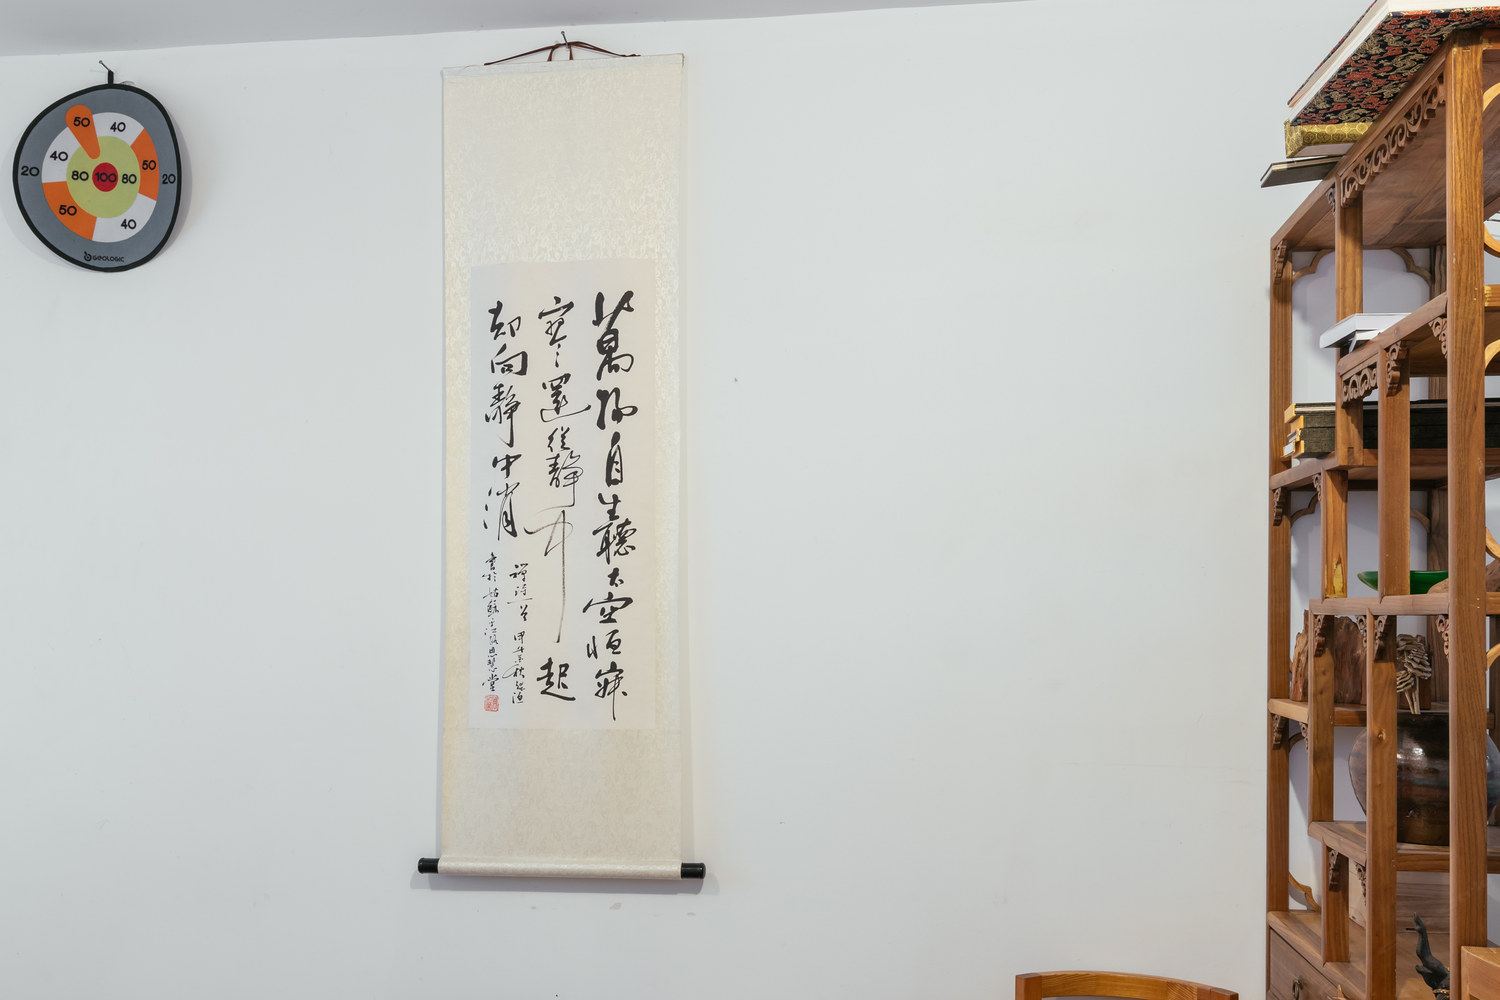 50
40
40
50
20
80
100
80
20
50
40
GEOLOGIC
萬物自生聽太空恒寂
寥還從靜中起
却向靜中消
禪詩一首 甲午年秋
書於姑蘇 思慧堂